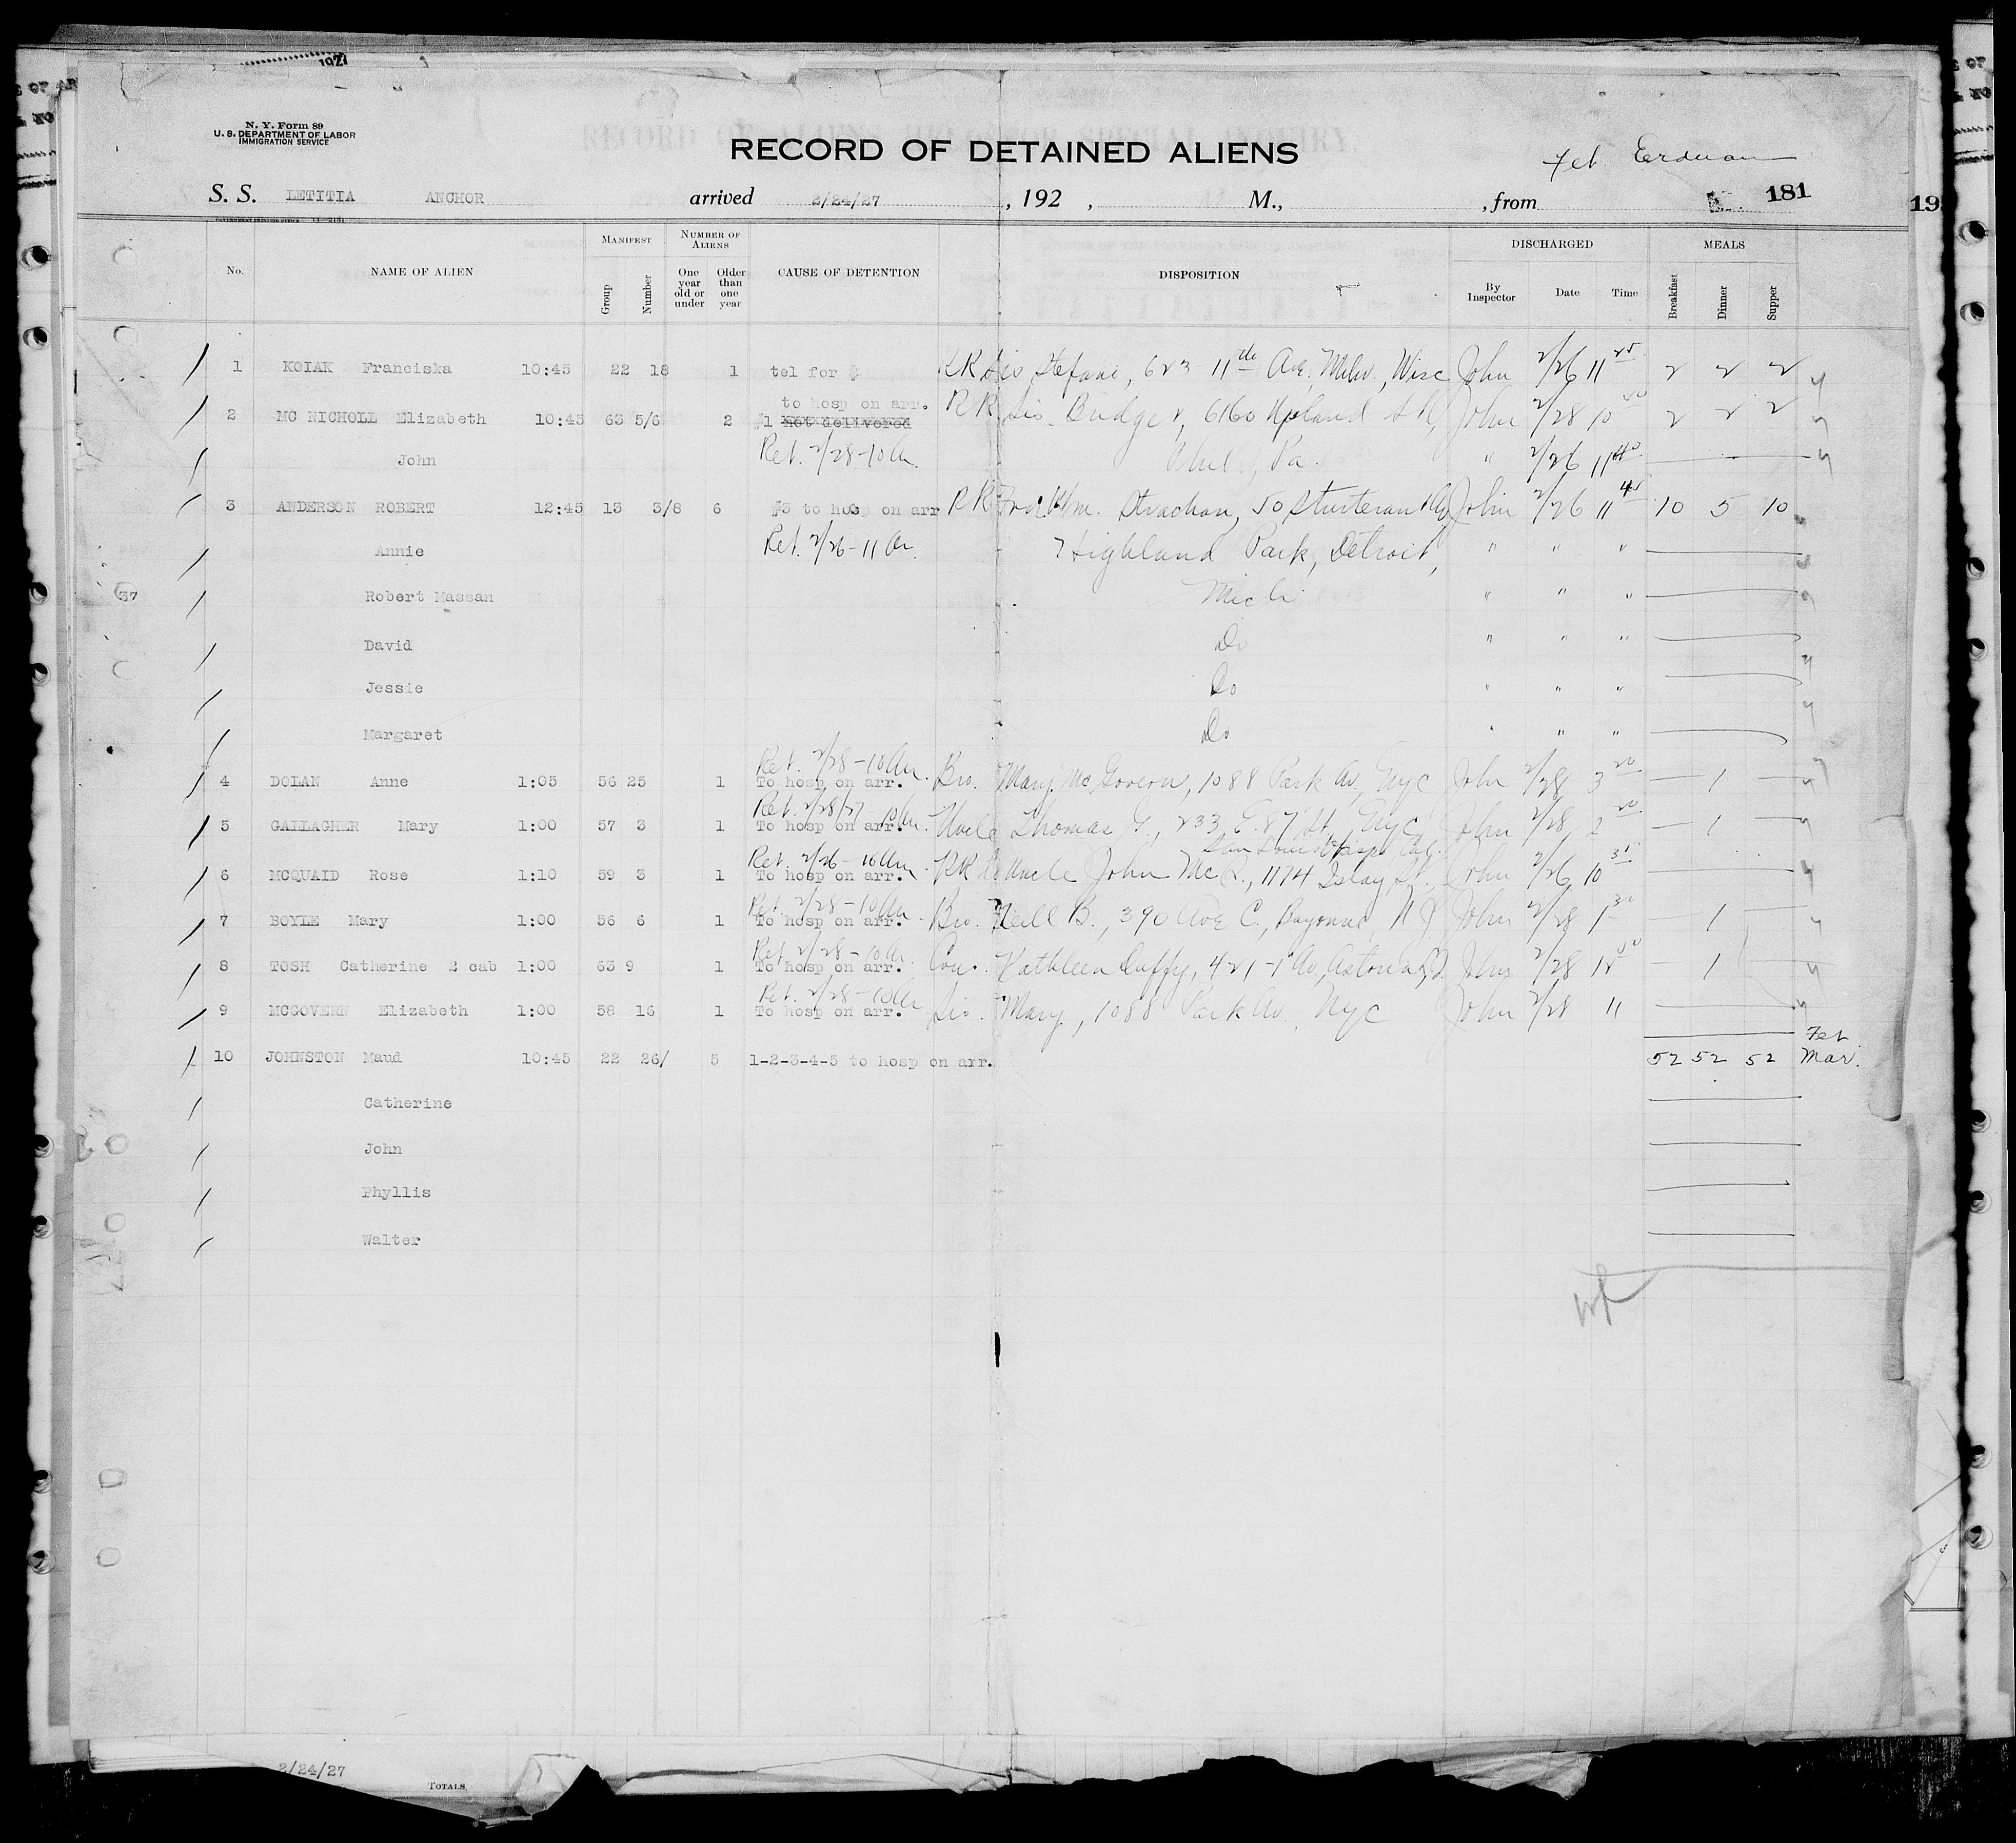 1927
N. Y. Form 89
U. S. DEPARTMENT OF LABOR
IMMIGRATION SERVICE
RECORD OF DETAINED ALIENS
Feb. Erdman
S. S. LETITIA ANCHOR arrived 2/24/27 , 192 , M., , from 181
No. NAME OF ALIEN MANIFEST Group Number NUMBER OF ALIENS One year old or under Older than one year CAUSE OF DETENTION DISPOSITION DISCHARGED By Inspector Date Time MEALS Breakfast Dinner Supper
1 KOIAK Franciska 10:45 22 18 1 tel for $ RR Sis Stefani, 623 11th Ave. Milw., Wisc John 2/26 11 25 2 2 2
to hosp on arr.
2 MC NICHOLL Elizabeth 10:45 63 5/6 2 #1 not delivered RR Sis. Bridget, 6160 Upland St, John 2/28 10 50 2 2 2
John Ret. 2/28-10 Am. Phil., Pa. " 2/26 11 40
3 ANDERSON ROBERT 12:45 13 3/8 6 #3 to hosp on arr RR Wm. Strachan, 50 John 2/26 11 45 10 5 10
Annie Ret. 2/26-11 Am. Highland Park, Detroit, " " "
37 Robert Massan Mich. " " "
David Do " " "
Jessie Do " " "
Margaret Do " " "
Ret. 2/28-10 Am.
4 DOLAN Anne 1:05 56 25 1 To hosp on arr. Mary McGovern, 1088 Park Av., Nyc John 2/28 3 20 1
Ret. 2/28/27-10 Am.
5 GALLAGHER Mary 1:00 57 3 1 To hosp on arr. Uncle Thomas G., 233 E. 87 St., Nyc John 2/28 2 20 1
Ret. 2/26-10 Am. San Louis Obispo, Cal.
6 MCQUAID Rose 1:10 59 3 1 To hosp on arr. RR to Uncle John McQ., 1174 Islay St., John 2/26 10 35
Ret. 2/28-10 Am.
7 BOYLE Mary 1:00 56 6 1 To hosp on arr. Bro. Neill B., 390 Ave C., Bayonne, N J John 2/28 1 30 1
Ret. 2/28-10 Am.
8 TOSH Catherine 2 cab 1:00 63 9 1 To hosp on arr. Cou. Kathleen Duffy, 421-1 Av, Astoria, John 2/28 12 50 1
Ret. 2/28-10 Am
9 MCGOVERN Elizabeth 1:00 58 16 1 To hosp on arr. Sis. Mary, 1088 Park Av., Nyc John 2/28 11
Feb
10 JOHNSTON Maud 10:45 22 26/ 5 1-2-3-4-5 to hosp on arr. 52 52 52 Mar.
Catherine
John
Phyllis
Walter
2/24/27
TOTALS